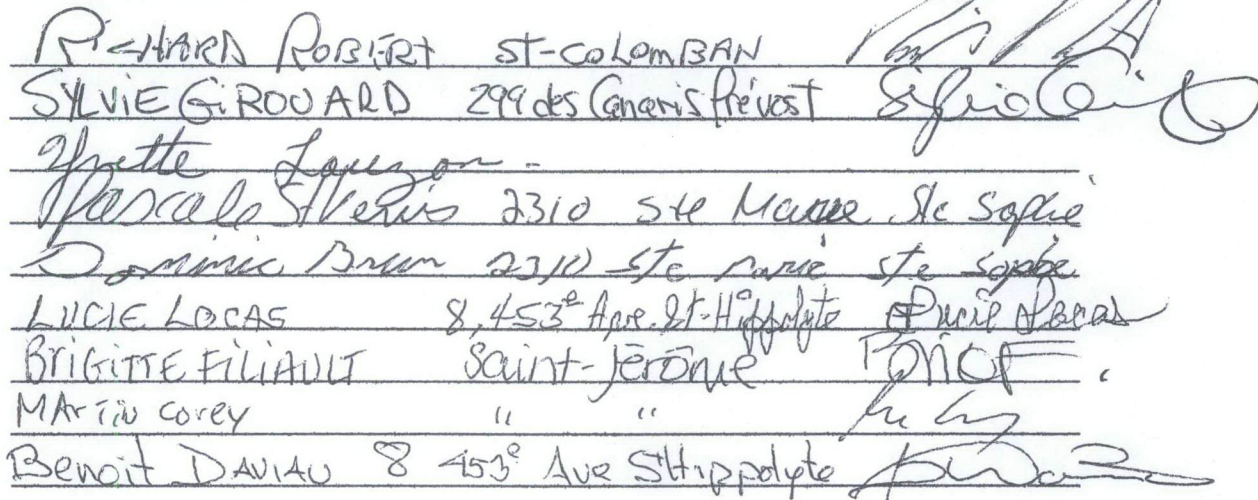 RICHARD ROBERT ST-COLOMBAN
SYLVIE GIROUARD 299 des Canaris Prévost
Yvette
Pascale 2310 Ste Marie Ste Sophie
Dominic Brun 2310 Ste Marie Ste Sophie
LUCIE LOCAS 8, 453e Ave. St-Hippolyte Lucie Locas
BRIGITTE FILIAULT Saint-Jérôme
MArTiN COREY " "
Benoit DAVIAU 8 453e Ave St Hippolyte